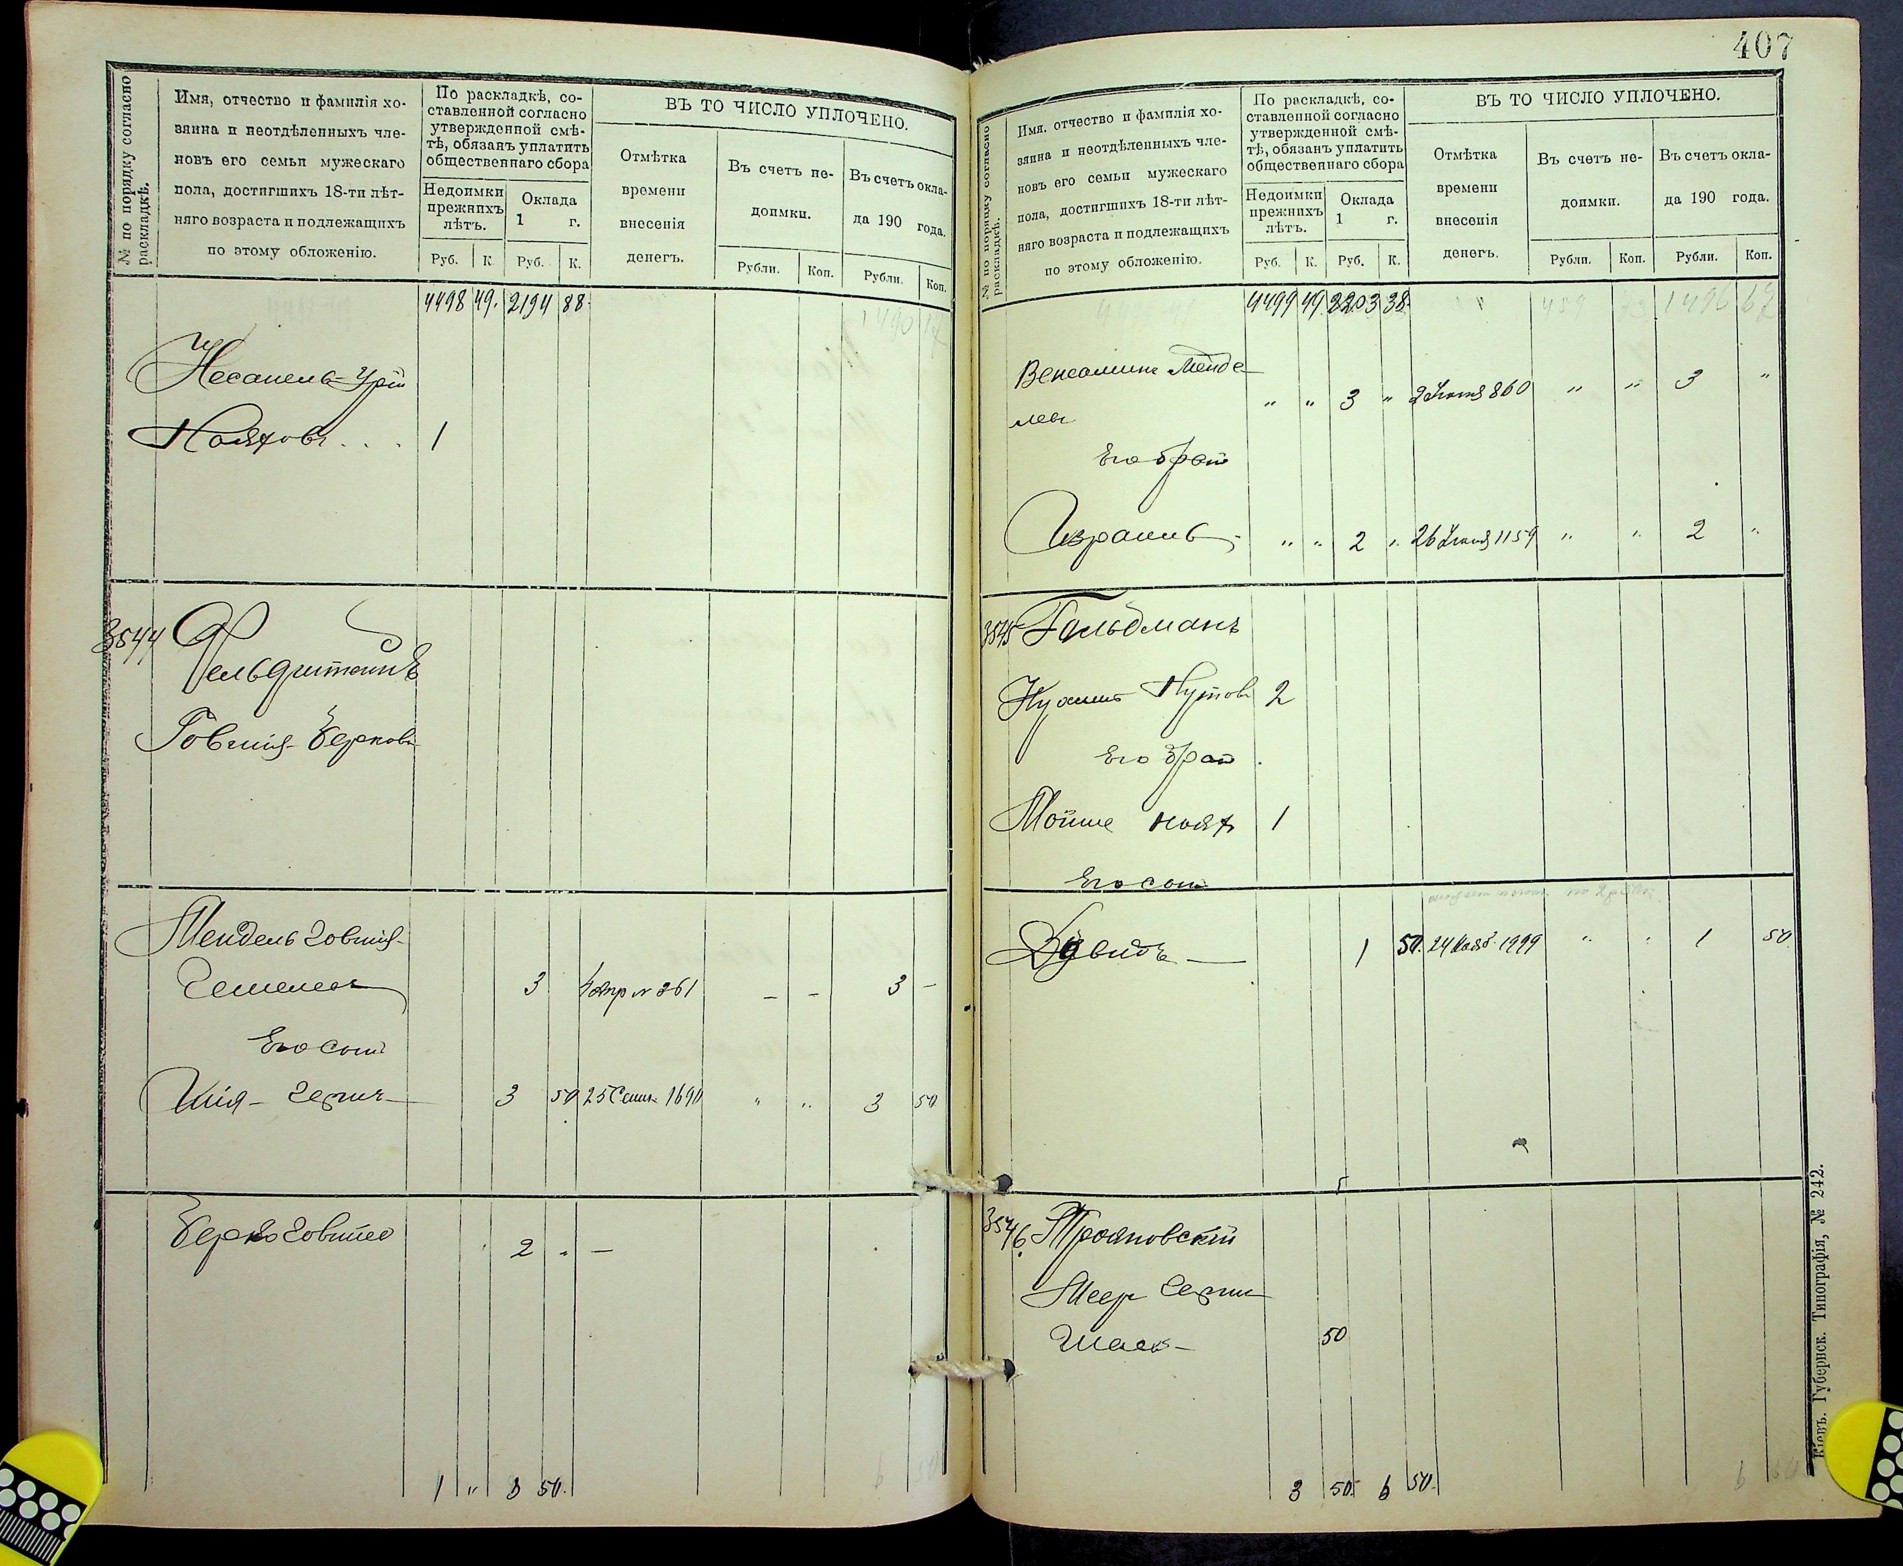 № по порядку согласно раскладкѣ.
Имя, отчество и фамилія хо-
зяина и неотдѣленныхъ чле-
новъ его семьи мужескаго
пола, достигшихъ 18-ти лѣт-
няго возраста и подлежащихъ
по этому обложенію.
По раскладкѣ, со-
ставленной согласно
утвержденной смѣ-
тѣ, обязанъ уплатить
общественнаго сбора
Недоимки
прежнихъ
лѣтъ.
Оклада
1 г.
Руб. К. Руб. К.
ВЪ ТО ЧИСЛО УПЛОЧЕНО.
Отмѣтка
времени
внесенія
денегъ.
Въ счетъ не-
доимки.
Въ счетъ окла-
да 190 года.
Рубли. Коп. Рубли. Коп.
4498 49. 2194 88.
Нояховъ . . . 1
3544
Фельдштейнъ
Говшія Берковъ
Мендель Говшія-
3 261 – – 3 –
Его сынъ
Шія- 3 50 25 1690 " " 3 50
Берко Говшіев
2 " —
1 " 8 50.
407
№ по порядку согласно раскладкѣ.
Имя, отчество и фамилія хо-
зяина и неотдѣленныхъ чле-
новъ его семьи мужескаго
пола, достигшихъ 18-ти лѣт-
няго возраста и подлежащихъ
по этому обложенію.
По раскладкѣ, со-
ставленной согласно
утвержденной смѣ-
тѣ, обязанъ уплатить
общественнаго сбора
Недоимки
прежнихъ
лѣтъ.
Оклада
1 г.
Руб. К. Руб. К.
ВЪ ТО ЧИСЛО УПЛОЧЕНО.
Отмѣтка
времени
внесенія
денегъ.
Въ счетъ не-
доимки.
Въ счетъ окла-
да 190 года.
Рубли. Коп. Рубли. Коп.
4499 49 2203 38.
Веніаминъ Менде-
левъ " " 3 " 860 " " 3 "
Его братъ
Израиль - " " 2 " 26 1159 " " 2 "
3545 Гольдманъ
2
Его братъ
МойшеНоях 1
Его сынъ
Давидъ — 1 50. 24 Нояб. 1999 " " 1 50.
3546 Трояновскій
Меер
50
3 50. 6 50.
Кіевъ. Губернск. Типографія, № 242.